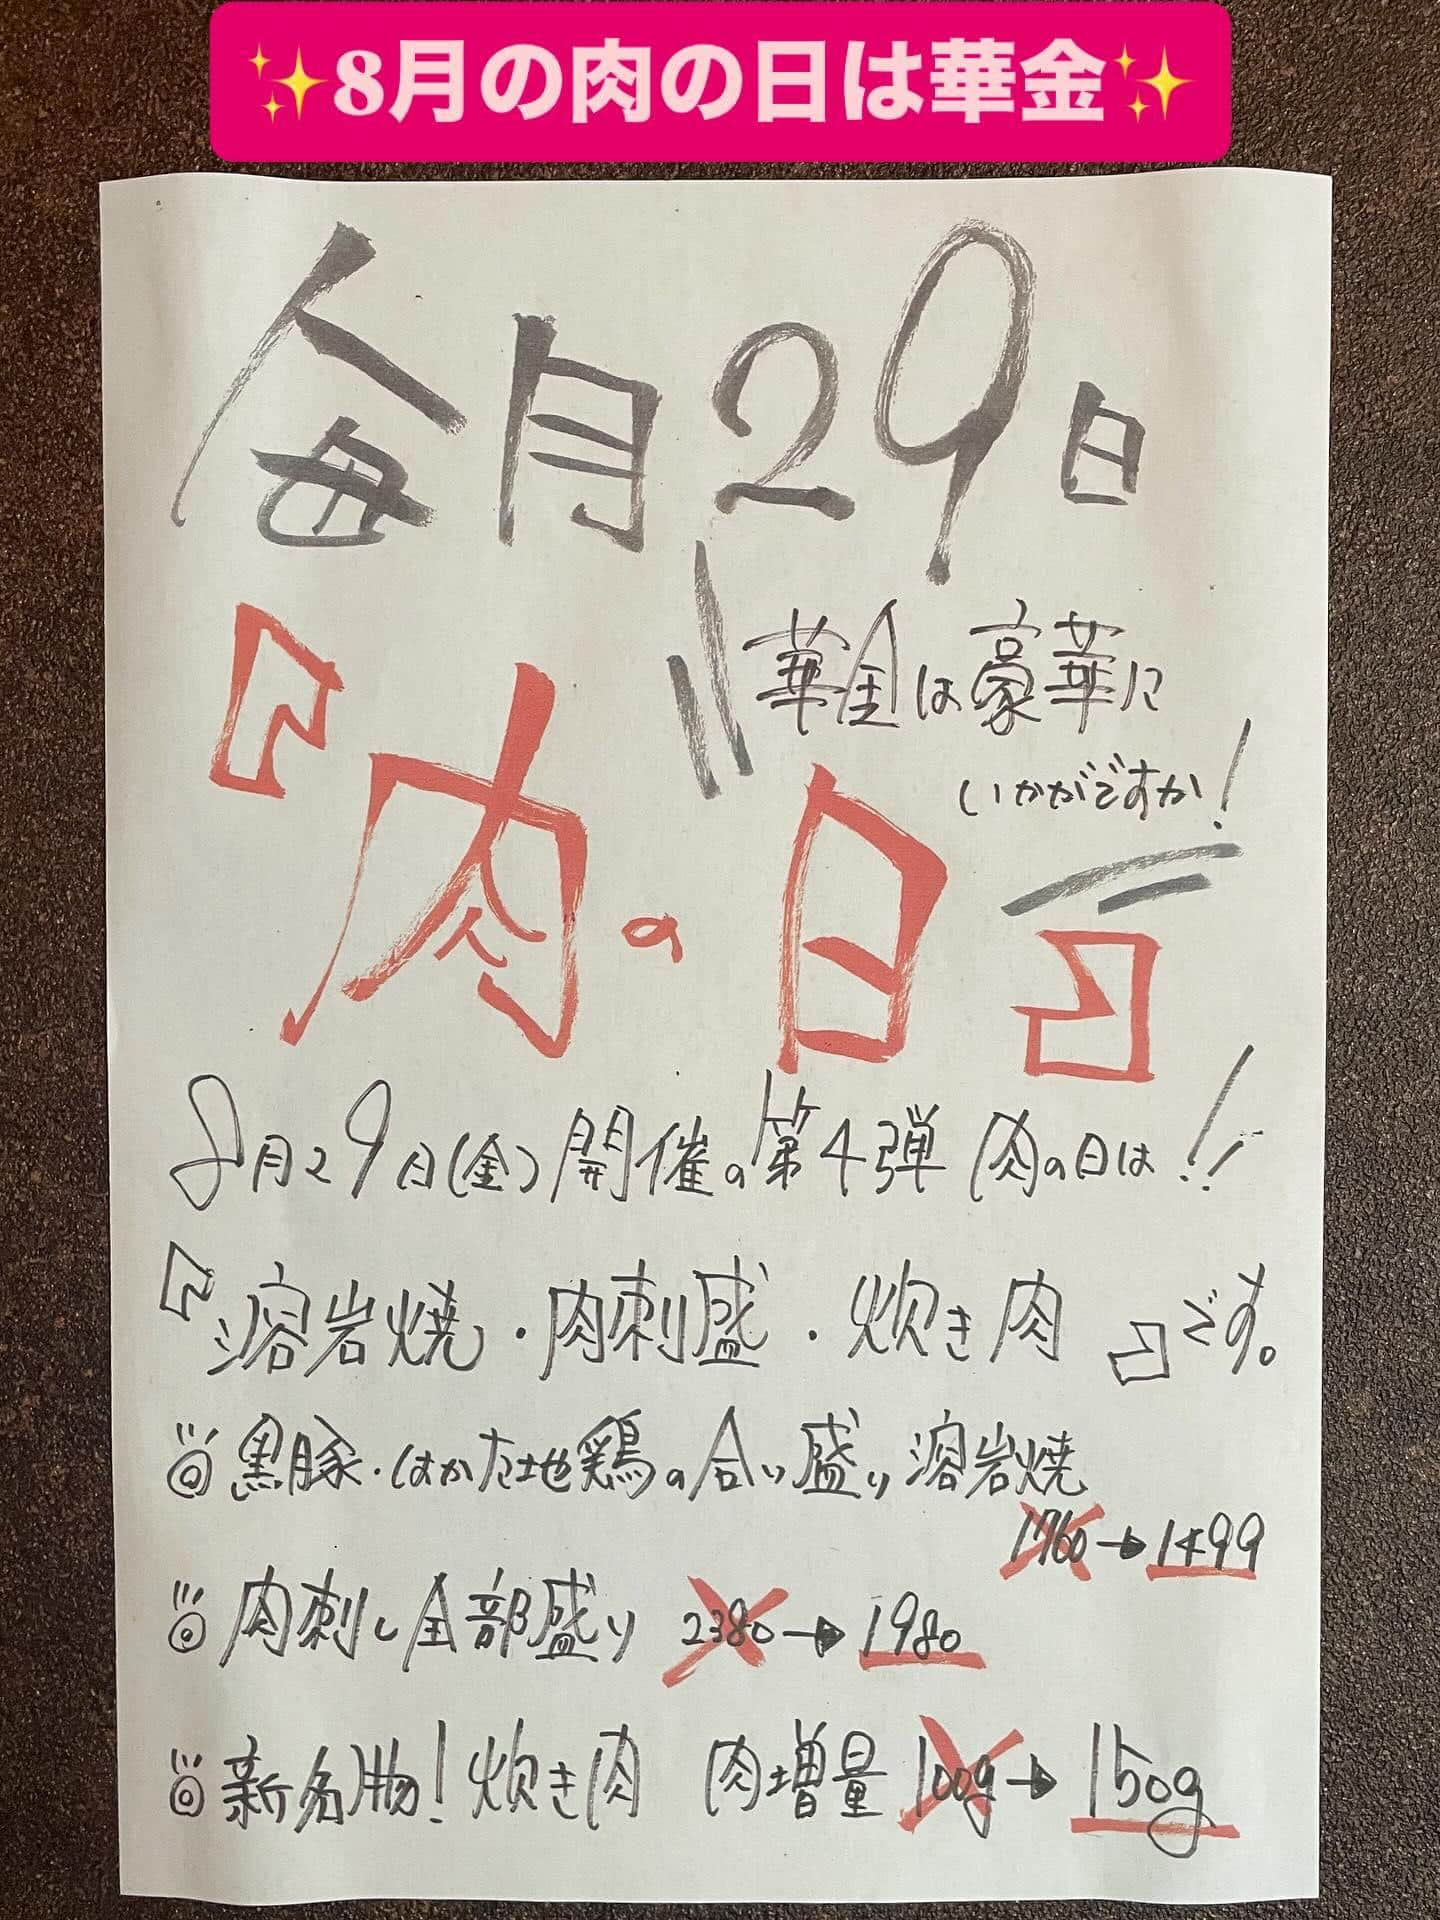 ✨8月の肉の日は華金✨
毎月29日
華金は豪華に
いかがですか!
『肉の日』
8月29日(金)開催の第4弾 肉の日は!!
『溶岩焼・肉刺盛・炊き肉』です。
◎黒豚・はかた地鶏の合い盛り溶岩焼
1760→1499
◎肉刺し全部盛り 2380→1980
◎新名物!炊き肉 肉増量 100g→150g